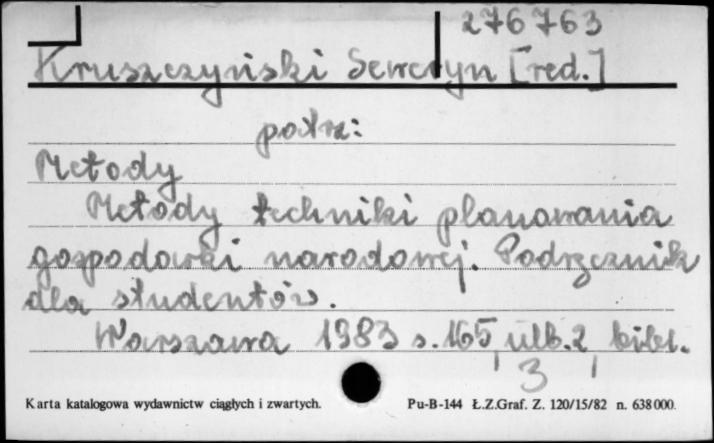 276763
Kruszczyński Seweryn [red.]
patrz:
Metody
Metody techniki planowania
gospodarki narodowej. Podręcznik
dla studentów.
Warszawa 1983 s. 165, nlb. 2, bibl.
3
Karta katalogowa wydawnictw ciągłych i zwartych. Pu-B-144 Ł.Z.Graf. Z. 120/15/82 n. 638000.